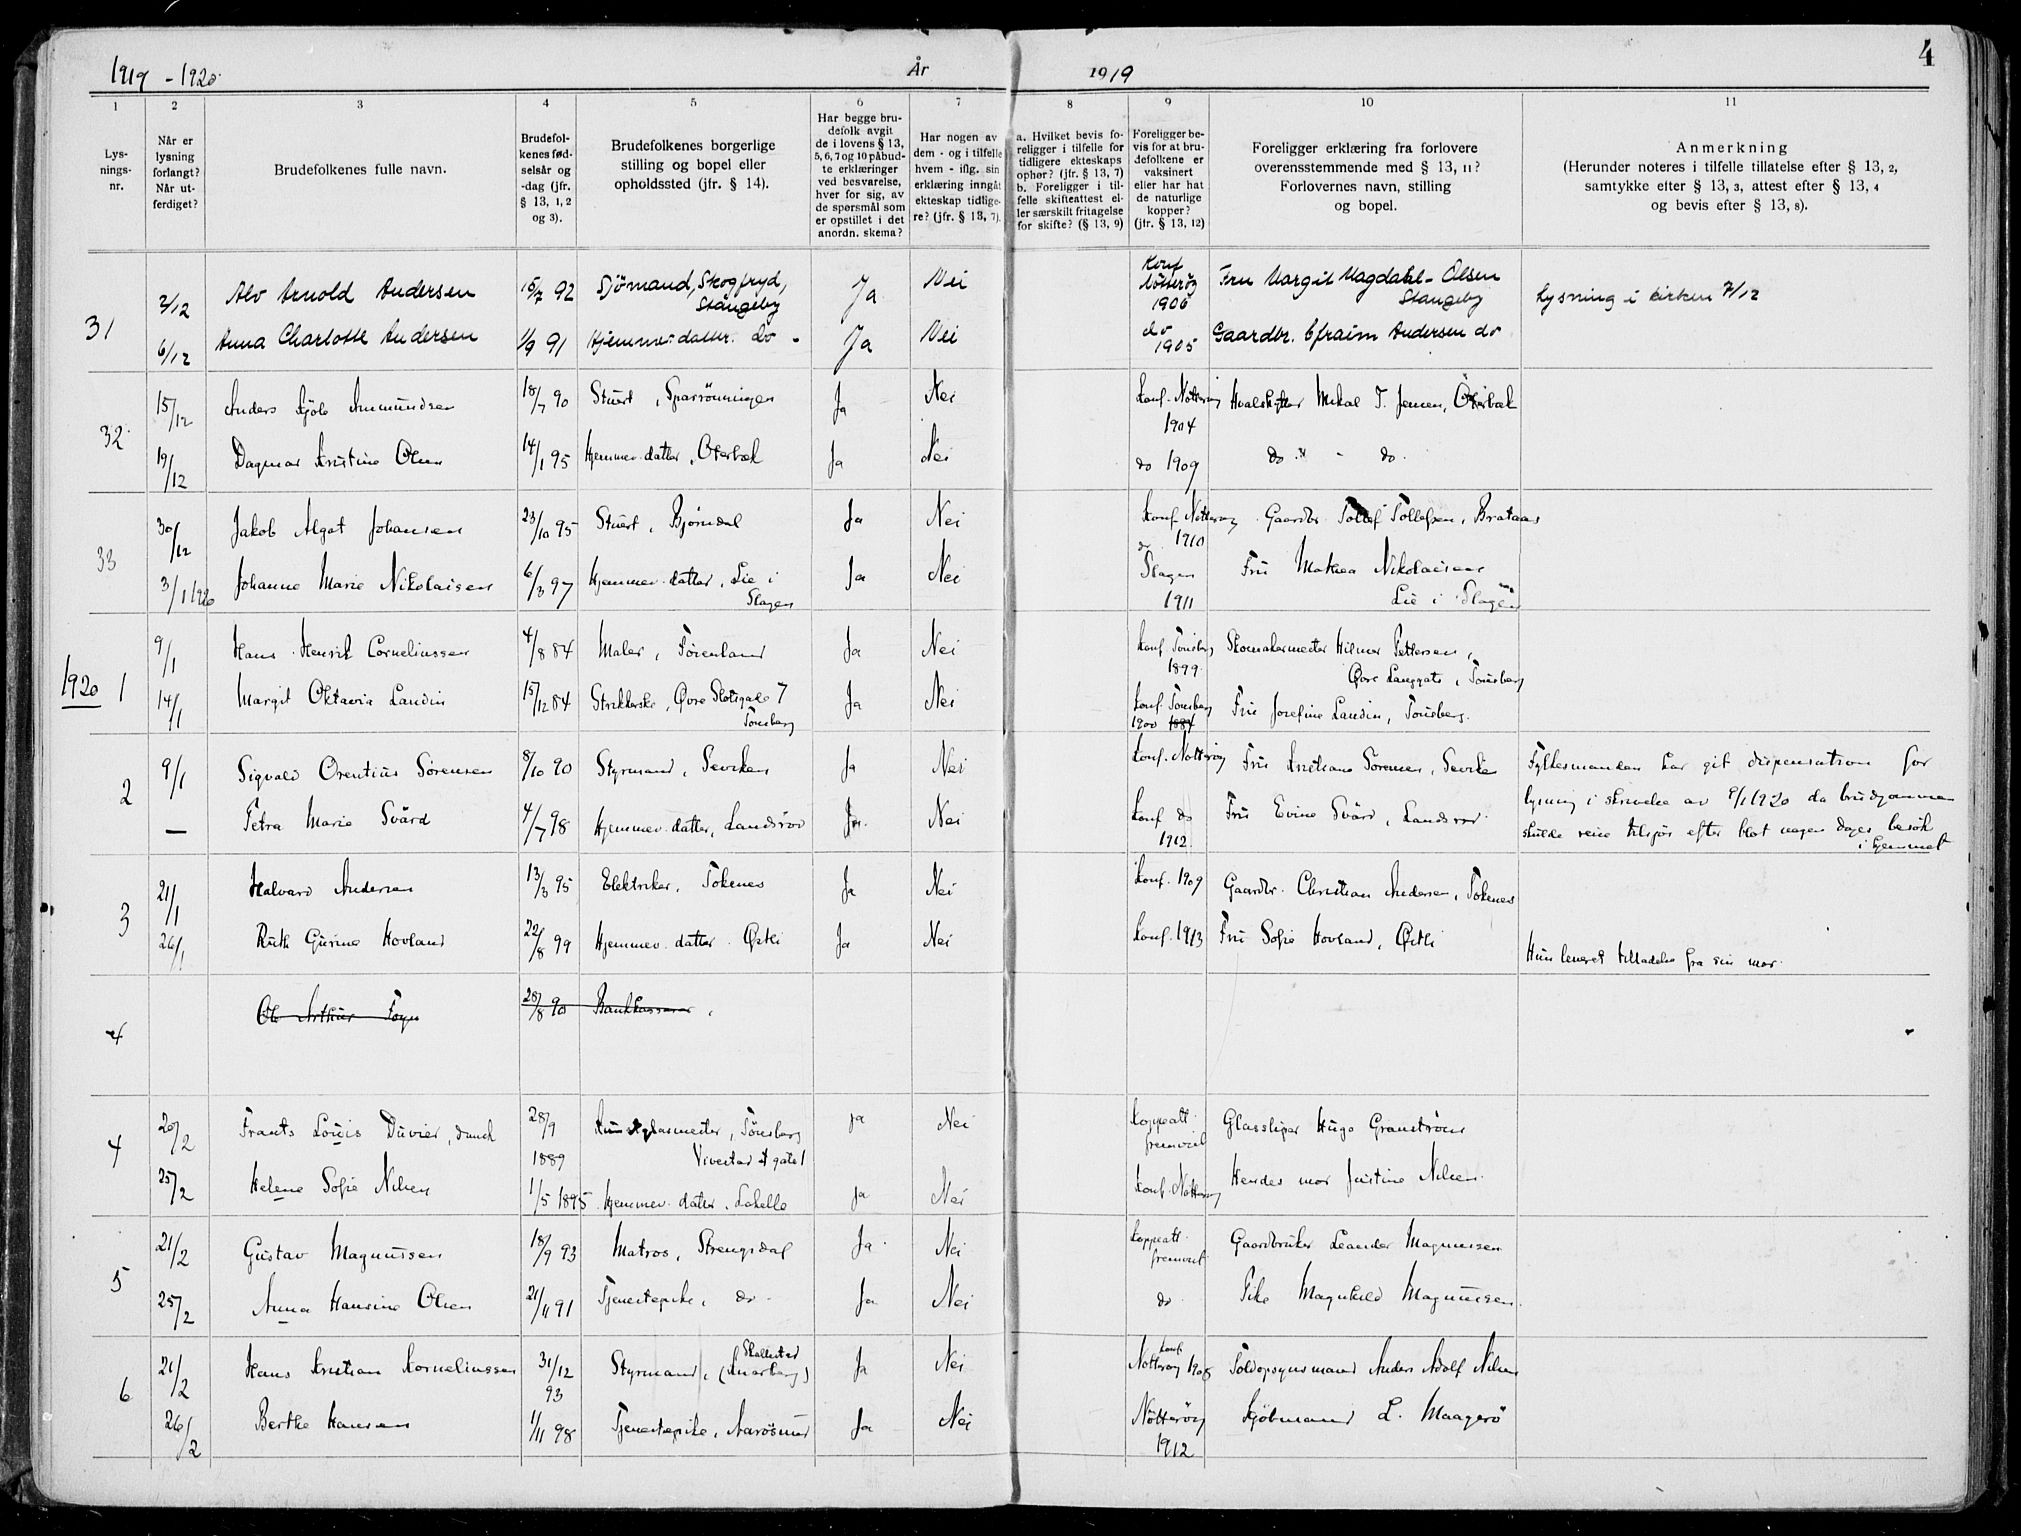 1919 - 1920. År 1919 4
1 2 3 4 5 6 7 8 9 10 11
Lys-
nings-
nr.
Når er
lysning
forlangt?
Når ut-
ferdiget?
Brudefolkenes fulle navn.
Brudefol-
kenes fød-
selsår og
-dag (jfr.
§ 13, 1, 2
og 3).
Brudefolkenes borgerlige
stilling og bopel eller
opholdssted (jfr. § 14).
Har begge bru-
defolk avgit
de i lovens § 13,
5, 6, 7 og 10 påbud-
te erklæringer
ved besvarelse,
hver for sig, av
de spørsmål som
er opstillet i det
anordn. skema?
Har nogen av
dem - og i tilfelle
hvem - iflg. sin
erklæring inngåt
ekteskap tidlige-
re? (jfr. § 13, 7).
a. Hvilket bevis fo-
religger i tilfelle for
tidligere ekteskaps
ophør? (jfr. § 13, 7)
b. Foreligger i til-
felle skifteattest el-
ler særskilt fritagelse
for skifte? (§ 13, 9)
Foreligger be-
vis for at bru-
defolkene er
vaksinert
eller har hat
de naturlige
kopper?
(jfr. § 13, 12)
Foreligger erklæring fra forlovere
overensstemmende med § 13, 11?
Forlovernes navn, stilling
og bopel.
Anmerkning
(Herunder noteres i tilfelle tillatelse efter § 13, 2,
samtykke efter § 13, 3, attest efter § 13, 4
og bevis efter § 13, 8).
31
2/12 Alv Arnold Andersen 15/7 92 Sjömand, Skogfryd,
Stangeby Ja Nei Konf Nötteröy
1906 Fru Margit Magdahl-Olsen
Stangeby Lysning i kirken 7/12
6/12 Anna Charlotte Andersen 1/9 91 Hjemmev. datter. do - Ja Nei do
1905 Gaardbr. Efraim Andersen do
32
15/12 Anders Kjöle Ammundsen 18/7 90 Stuert, Sparrönningen Ja Nei Konf. Nötteröy
1904 Hvalskytter Mikal T. Jensen, Oterbæk
19/12 Dagmar Kristine Olsen 14/1 95 Hjemmev. datter, Oterbæk Ja Nei do 1909 do " - do.
33
30/12 Jakob Algot Johansen 23/10 95 Stuert, Bjørndal Ja Nei Konf Nötteröy
1910 Gaardbr. Tollef Tollefsen, Brataas
3/1 1920 Johanne Marie Nikolaisen 6/3 97 Hjemmev. datter, Lie i
Slagen Ja Nei do
Slagen
1911 Fru Mathea Nikolaisen
Lie i Slagen
1920 1
9/1 Hans Henrik Corneliussen 4/8 84 Maler, Törenland Ja Nei Konf Tönsberg
1899. Skomakermester Hilmar Pettersen,
Øvre Langgate, Tönsberg
14/1 Margit Oktavia Landin 15/12 84 Strikkerske, Øvre Slotsgate 7
Tönsberg Ja Nei Konf. Tönsberg
1900 1884 Fru Josefine Landin, Tönsberg.
2
9/1 Sigvald Orentius Sörensen 8/10 90 Styrmand,Seviken Ja Nei Konf. Nötteröy Fru Kristiane Sörensen, Seviken Fylkesmanden har git dispensation for
lysning i skrivelse av 9/1 1920 da brudgommen
skulde reise tilsjøs efter blot nogen dages besøk
i hjemmet
— Petra Marie Svärd 4/7 98 Hjemmev. datter, Landsrød Ja. Nei Konf do
1912. Fru Evine Svärd, Landsrød.
3
21/1 Halvard Andersen 13/3 95 Elektriker, Tokenes Ja Nei Konf. 1909 Gaardbr. Christian Andersen, Tokenes
26/1 Ruth Gurine Hovland 22/8 99 Hjemmev. datter. Østli Ja Nei Konf. 1913 Fru Sofie Hovland, Østli Hun leveret tilladelse fra sin mor.
4
Ole Arthur Foyn 28/8 90 Bankkasserer,
4
20/2 Frants Louis Duvier, dansk 28/9
1889 Kunstglasmester, Tönsberg
Vivestad gate 1 Ja Nei Koppeatt.
fremvist Glassliper Hugo Granström
25/2 Helene Sofie Nilsen 1/5 1895 Hjemmev. datter, Lahelle Ja Nei Konf. Nötteröy Hendes mor Justine Nilsen.
5
21/2 Gustav Magnussen 18/9 93 Matros, Strengsdal Ja. Nei Koppeatt.
fremvist Gaardbruker Leander Magnussen
25/2 Anna Hansine Olsen 21/11 91 Tjenestepike, do - Ja Nei do Pike Magnhild Magnussen.
6
21/2 Hans Kristian Korneliussen 31/12
93 Styrmand, Skallestad
(Knarberg) Ja Nei Konf
Nötteröy 1908 Toldopsynsmand Anders Adolf Nilsen
26/2 Berthe Hansen 1/11 98 Tjenestepike, Aarösund Ja Nei Nötteröy
1912 Kjöbmand L. Maagerö